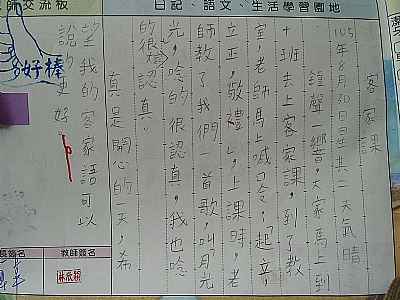 日記、語文、生活學習園地
師交流板
客家課
105年8月30日星其二天氣晴
鐘聲響,大家馬上到
十班去上客家課,到了教
室,老師馬上喊口令,「起立,
立正,敬禮」,上課時,老
師教了我們一首歌,叫月光
光,唸的很認真,我也唸
的很認真。
真是開心的一天,希
望我的客家語可以
說的更好
好棒
長簽名
教師簽名